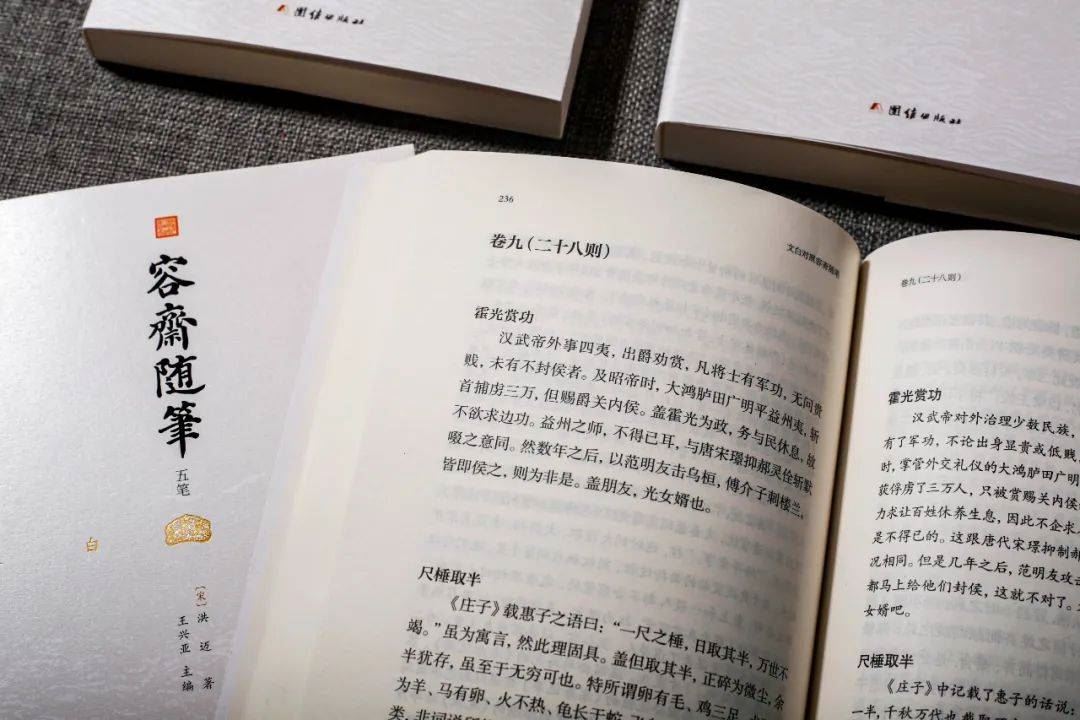 团结出版社
团结出版社
容齋随筆
五笔
白
［宋］洪 迈 著
王兴亚 主编
236
文白对照容斋随笔
卷九（二十八则）
霍光赏功
汉武帝外事四夷，出爵劝赏，凡将士有军功，无问贵
贱，未有不封侯者。及昭帝时，大鸿胪田广明平益州夷，斩
首捕虏三万，但赐爵关内侯。盖霍光为政，务与民休息，故
不欲求边功。益州之师，不得已耳，与唐宋璟抑郝灵佺斩默
啜之意同。然数年之后，以范明友击乌桓，傅介子刺楼兰，
皆即侯之，则为非是。盖明友，光女婿也。
尺棰取半
《庄子》载惠子之语曰：“一尺之棰，日取其半，万世不
竭。”虽为寓言，然此理固具。盖但取其半，正碎为微尘，余
半犹存，虽至于无穷可也。特所谓卵有毛、鸡三足、
为羊、马有卵、火不热、龟长于
类，非词说
卷九（二十八则）
霍光赏功
汉武帝对外治理少数民族，
有了军功，不论出身显贵或低贱，
时，掌管外交礼仪的大鸿胪田广明
获俘虏了三万人，只被赏赐关内侯
力求让百姓休养生息，因此不企求
是不得已的。这跟唐代宋璟抑制郝
况相同。但是几年之后，范明友攻
都马上给他们封侯，这就不对了。
女婿吧。
尺棰取半
《庄子》中记载了惠子的话说：
一半，千秋万代也